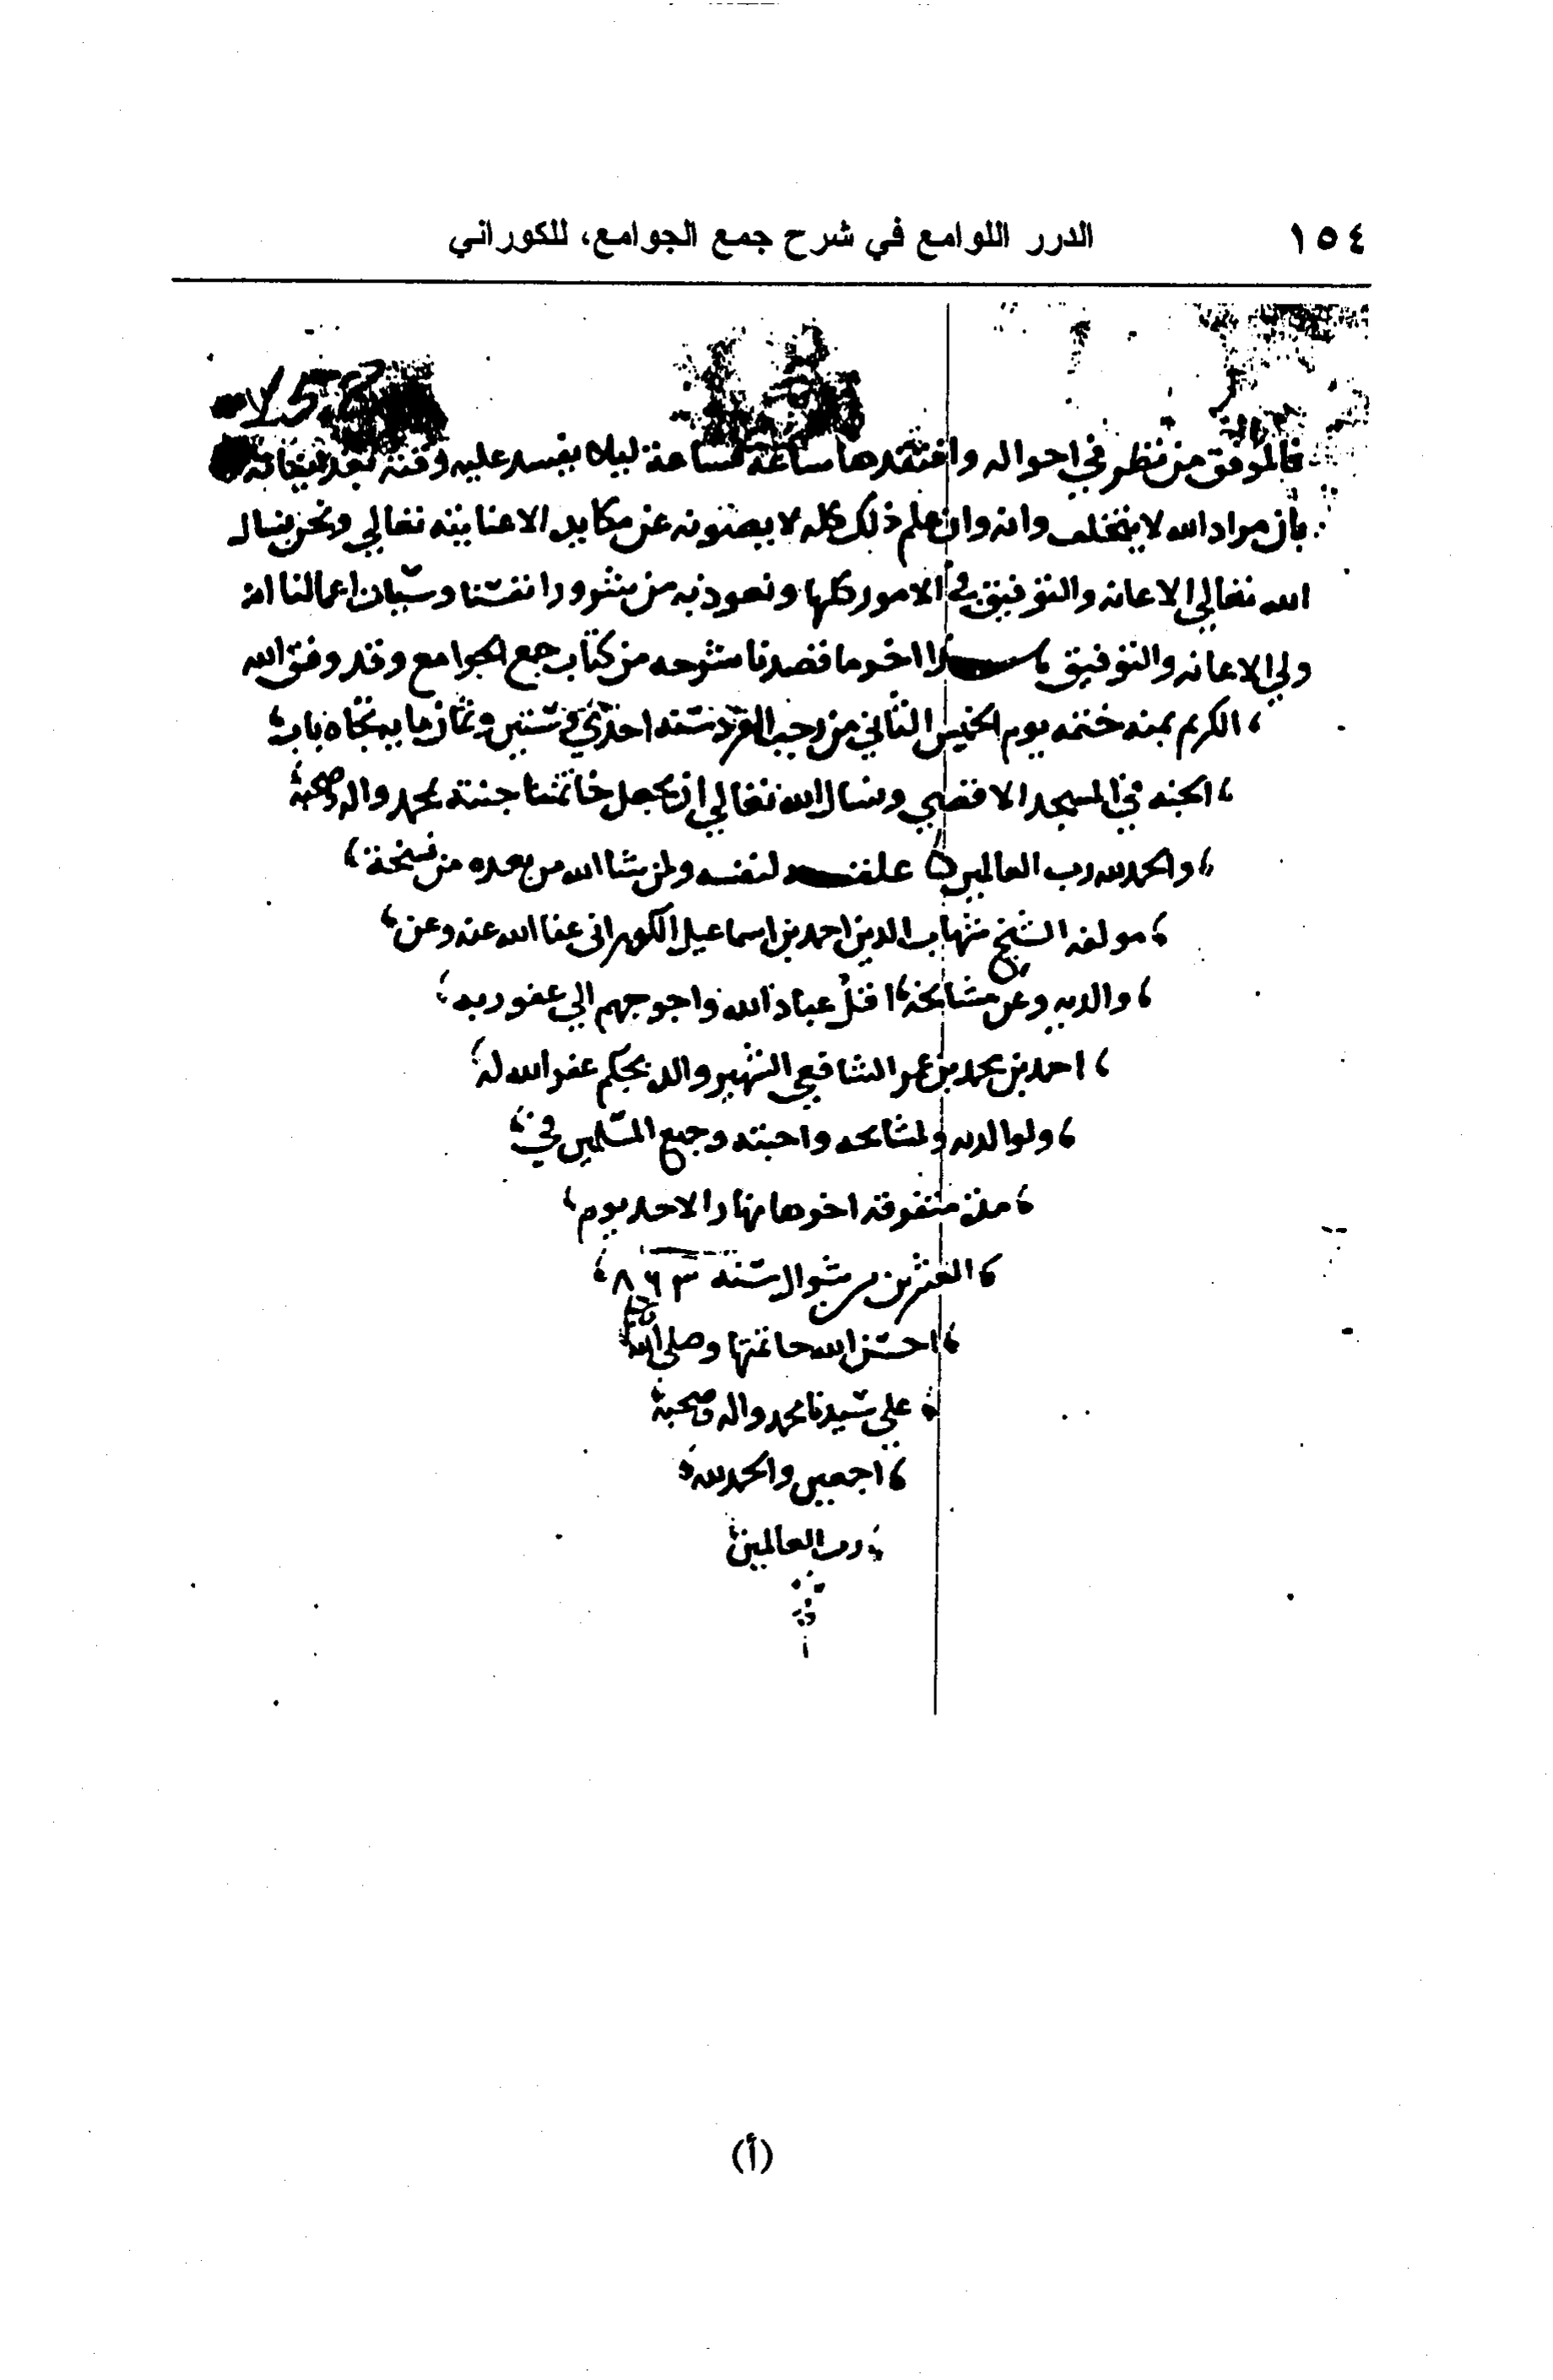 ١٥٤
الدرر اللوامع في شرح جمع الجوامع، للكوراني
فالموفق من نظر في احواله وافتقدها ساعة فساعة ليلا يفسد عليه وقته بعد
بان مراد الله لا يتخلف وانه وان علم ذلك كله لا يصونه عن مكايد الا عنايته تعالي ونحن نسال
الله تعالي الاعانه والتوفيق في الامور كلها ونعوذ به من شرور انفسنا وسيات اعمالنا انه
ولي الاعانه والتوفيق اخر ما قصدنا شرحه من كتاب جمع الجوامع وقد وفق الله
الكريم بمنه ختمه يوم الخميس الثاني من رجب الفرد سنه احدي وستين وثمان مايه تجاه باب
الجنه في المسجد الاقصي ونسال الله تعالي ان يجعل خاتمتنا جنته بمحمد واله وصحبه
والحمد لله رب العالمين علقه لنفسه ولمن شا الله من بعده من نسخة
مولفه الشيخ شهاب الدين احمد بن اسماعيل الكوراني عفا الله عنه وعن
والديه وعن مشايخه اقل عباد الله واحوجهم الي عفو ربه
احمد بن محمد بن عمر الشافعي الشهير والده عفر الله له
ولوالديه ولمشايخه واحبته وجميع المسلمين في
مدة متفرقه اخرها نهار الاحد يوم
العشرين من شوال سنة ٨٦٣
احسن الله خاتمتها وصلى الله
على سيدنا محمد واله وصحبه
اجمعين والحمد لله
رب العالمين
(أ)